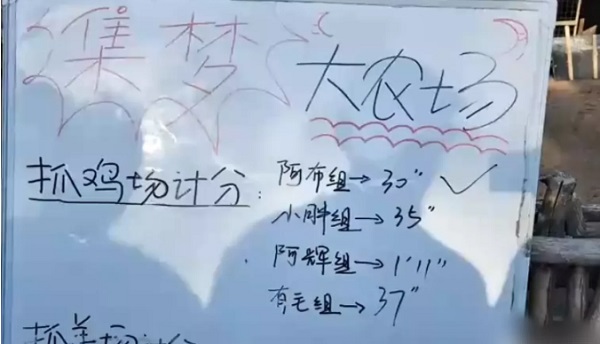 集梦 大农场
抓鸡场计分：阿布组→30"✓
小胖组→35"
阿辉组→1'11"
有毛组→37"
抓羊场计分